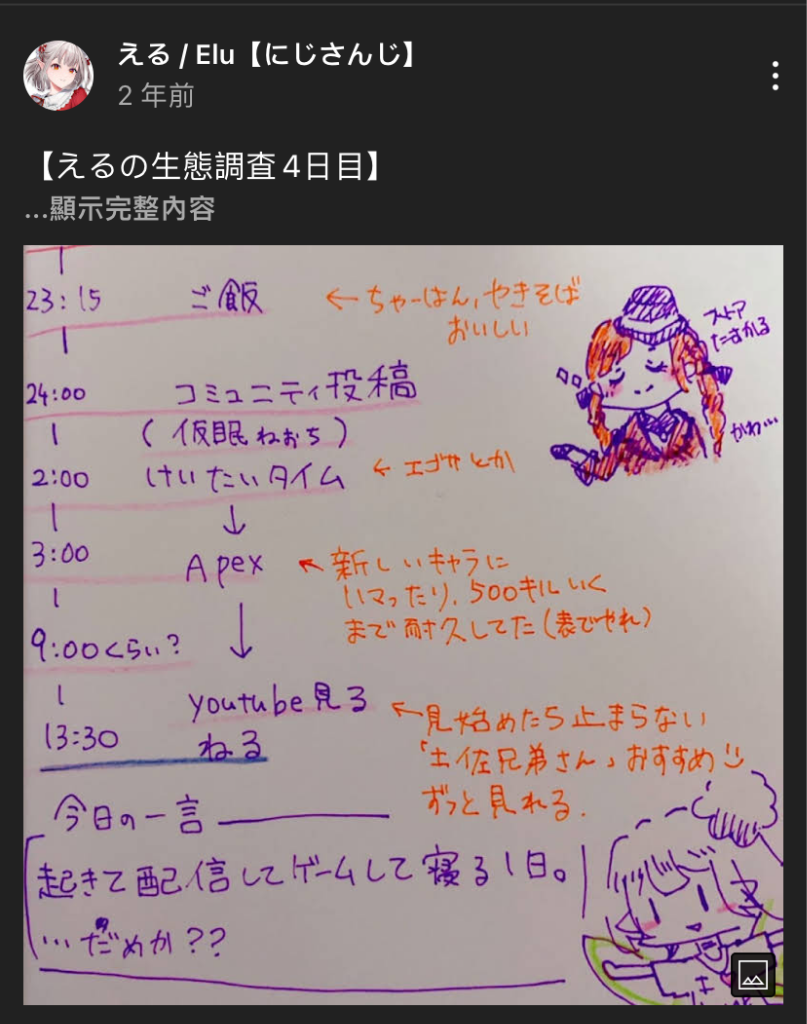 える / Elu【にじさんじ】
2 年前
【えるの生態調査4日目】
...顯示完整內容
23:15 ご飯 ← ちゃーはん、やきそば
おいしい
24:00 コミュニティ投稿
(仮眠ねおち)
2:00 けいたいタイム ← エゴサとか
↓
3:00 Apex ← 新しいキャラに
ハマったり、500キルいく
まで耐久してた(表でやれ)
↓
9:00くらい?
youtube見る ← 見始めたら止まらない
「土佐兄弟さん」おすすめ
ずっと見れる.
13:30 ねる
今日の一言
起きて配信してゲームして寝る1日。
…だめか??
かわ…